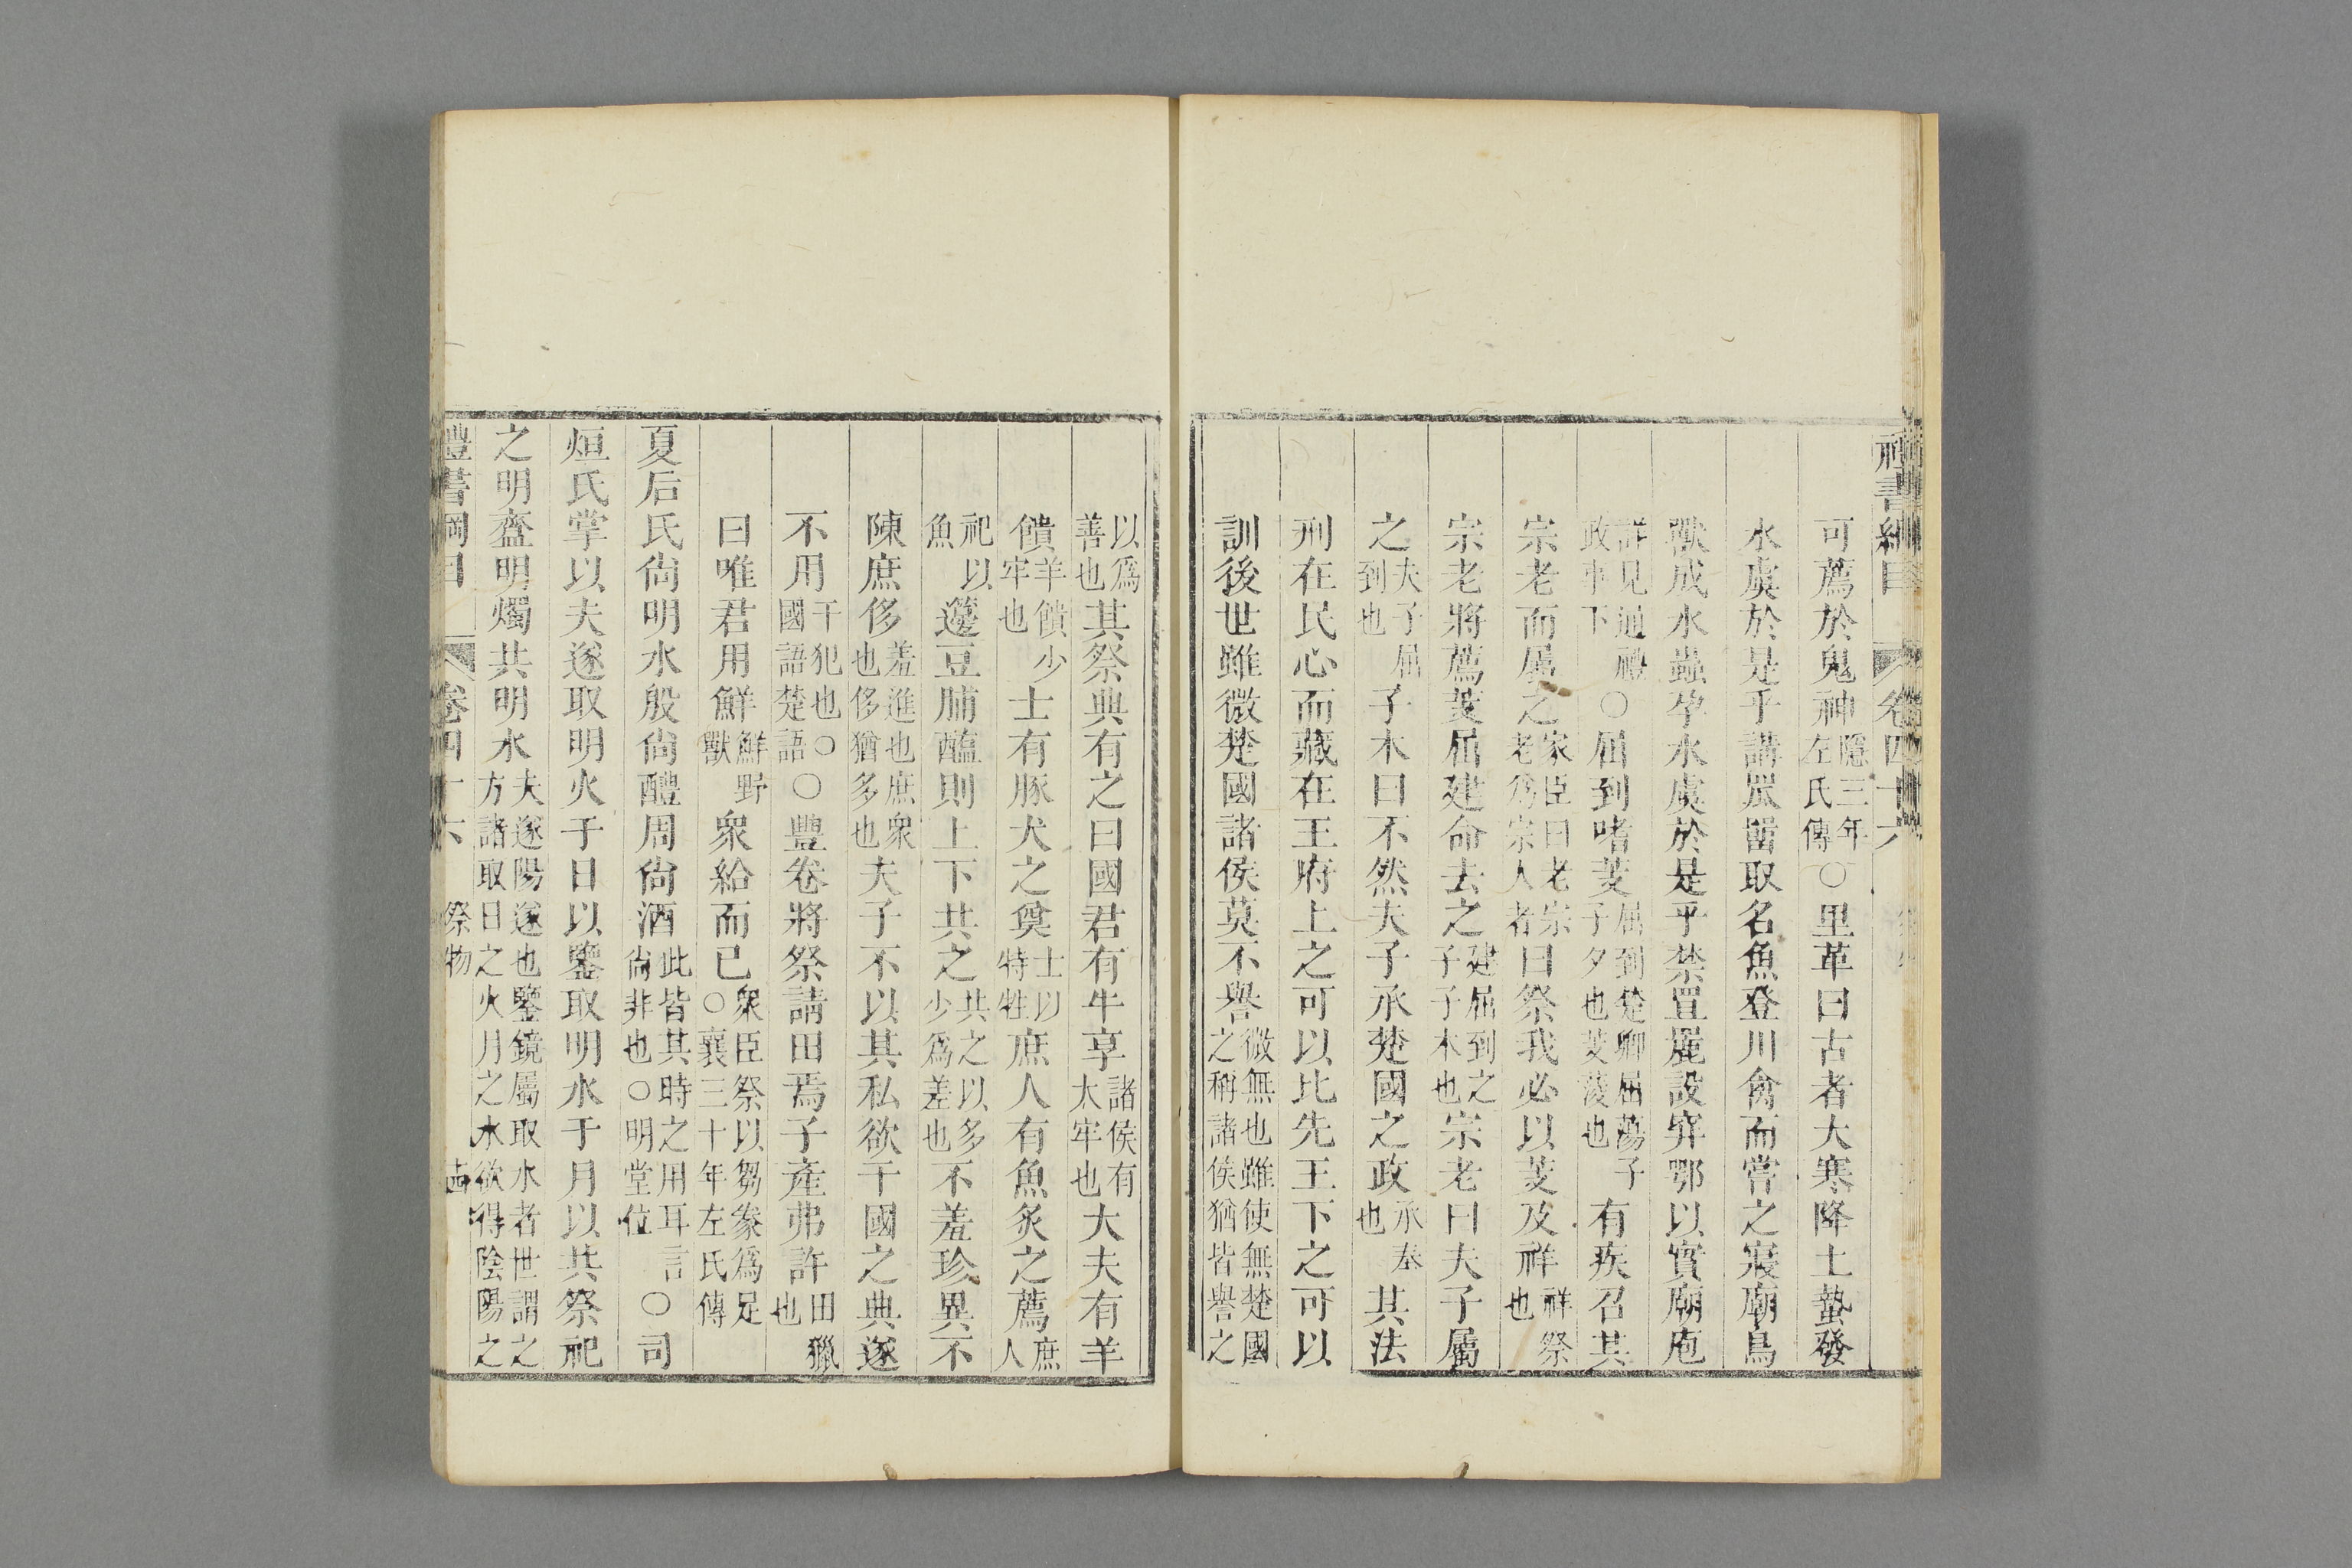 禮書綱目 卷四十六
可薦於鬼神隱三年左氏傳○里革曰古者大寒降土蟄發
水虞於是乎講罛罶取名魚登川禽而嘗之寢廟鳥
獸成水蟲孕水虞於是乎禁罝䍡設穽鄂以實廟庖
詳見通禮政事下○屈到嗜芰屈到楚卿屈蕩子子夕也芰蔆也有疾召其
宗老而屬之家臣曰老宗老爲宗人者曰祭我必以芰及祥祥祭也
宗老將薦芰屈建命去之建屈到之子子木也宗老曰夫子屬
之夫子屈到也子木曰不然夫子承楚國之政承奉也其法
刑在民心而藏在王府上之可以比先王下之可以
訓後世雖微楚國諸侯莫不譽微無也雖使無楚國之稱諸侯猶皆譽之
以爲善也其祭典有之曰國君有牛享諸侯有太牢也大夫有羊
饋羊饋少牢也士有豚犬之奠士以特牲庶人有魚炙之薦庶人
祀以魚籩豆脯醢則上下共之共之以多少爲差也不羞珍異不
陳庶侈羞進也庶衆也侈猶多也夫子不以其私欲干國之典遂
不用干犯也○國語楚語○豐卷將祭請田焉子產弗許田獵也
曰唯君用鮮鮮野獸衆給而已衆臣祭以芻豢爲足○襄三十年左氏傳
夏后氏尙明水殷尙醴周尙酒此皆其時之用耳言尙非也○明堂位○司
烜氏掌以夫遂取明火于日以鑒取明水于月以共祭祀
之明齍明燭共明水夫遂陽遂也鑒鏡屬取水者世謂之方諸取日之火月之水欲得陰陽之
禮書綱目 卷四十六 祭物